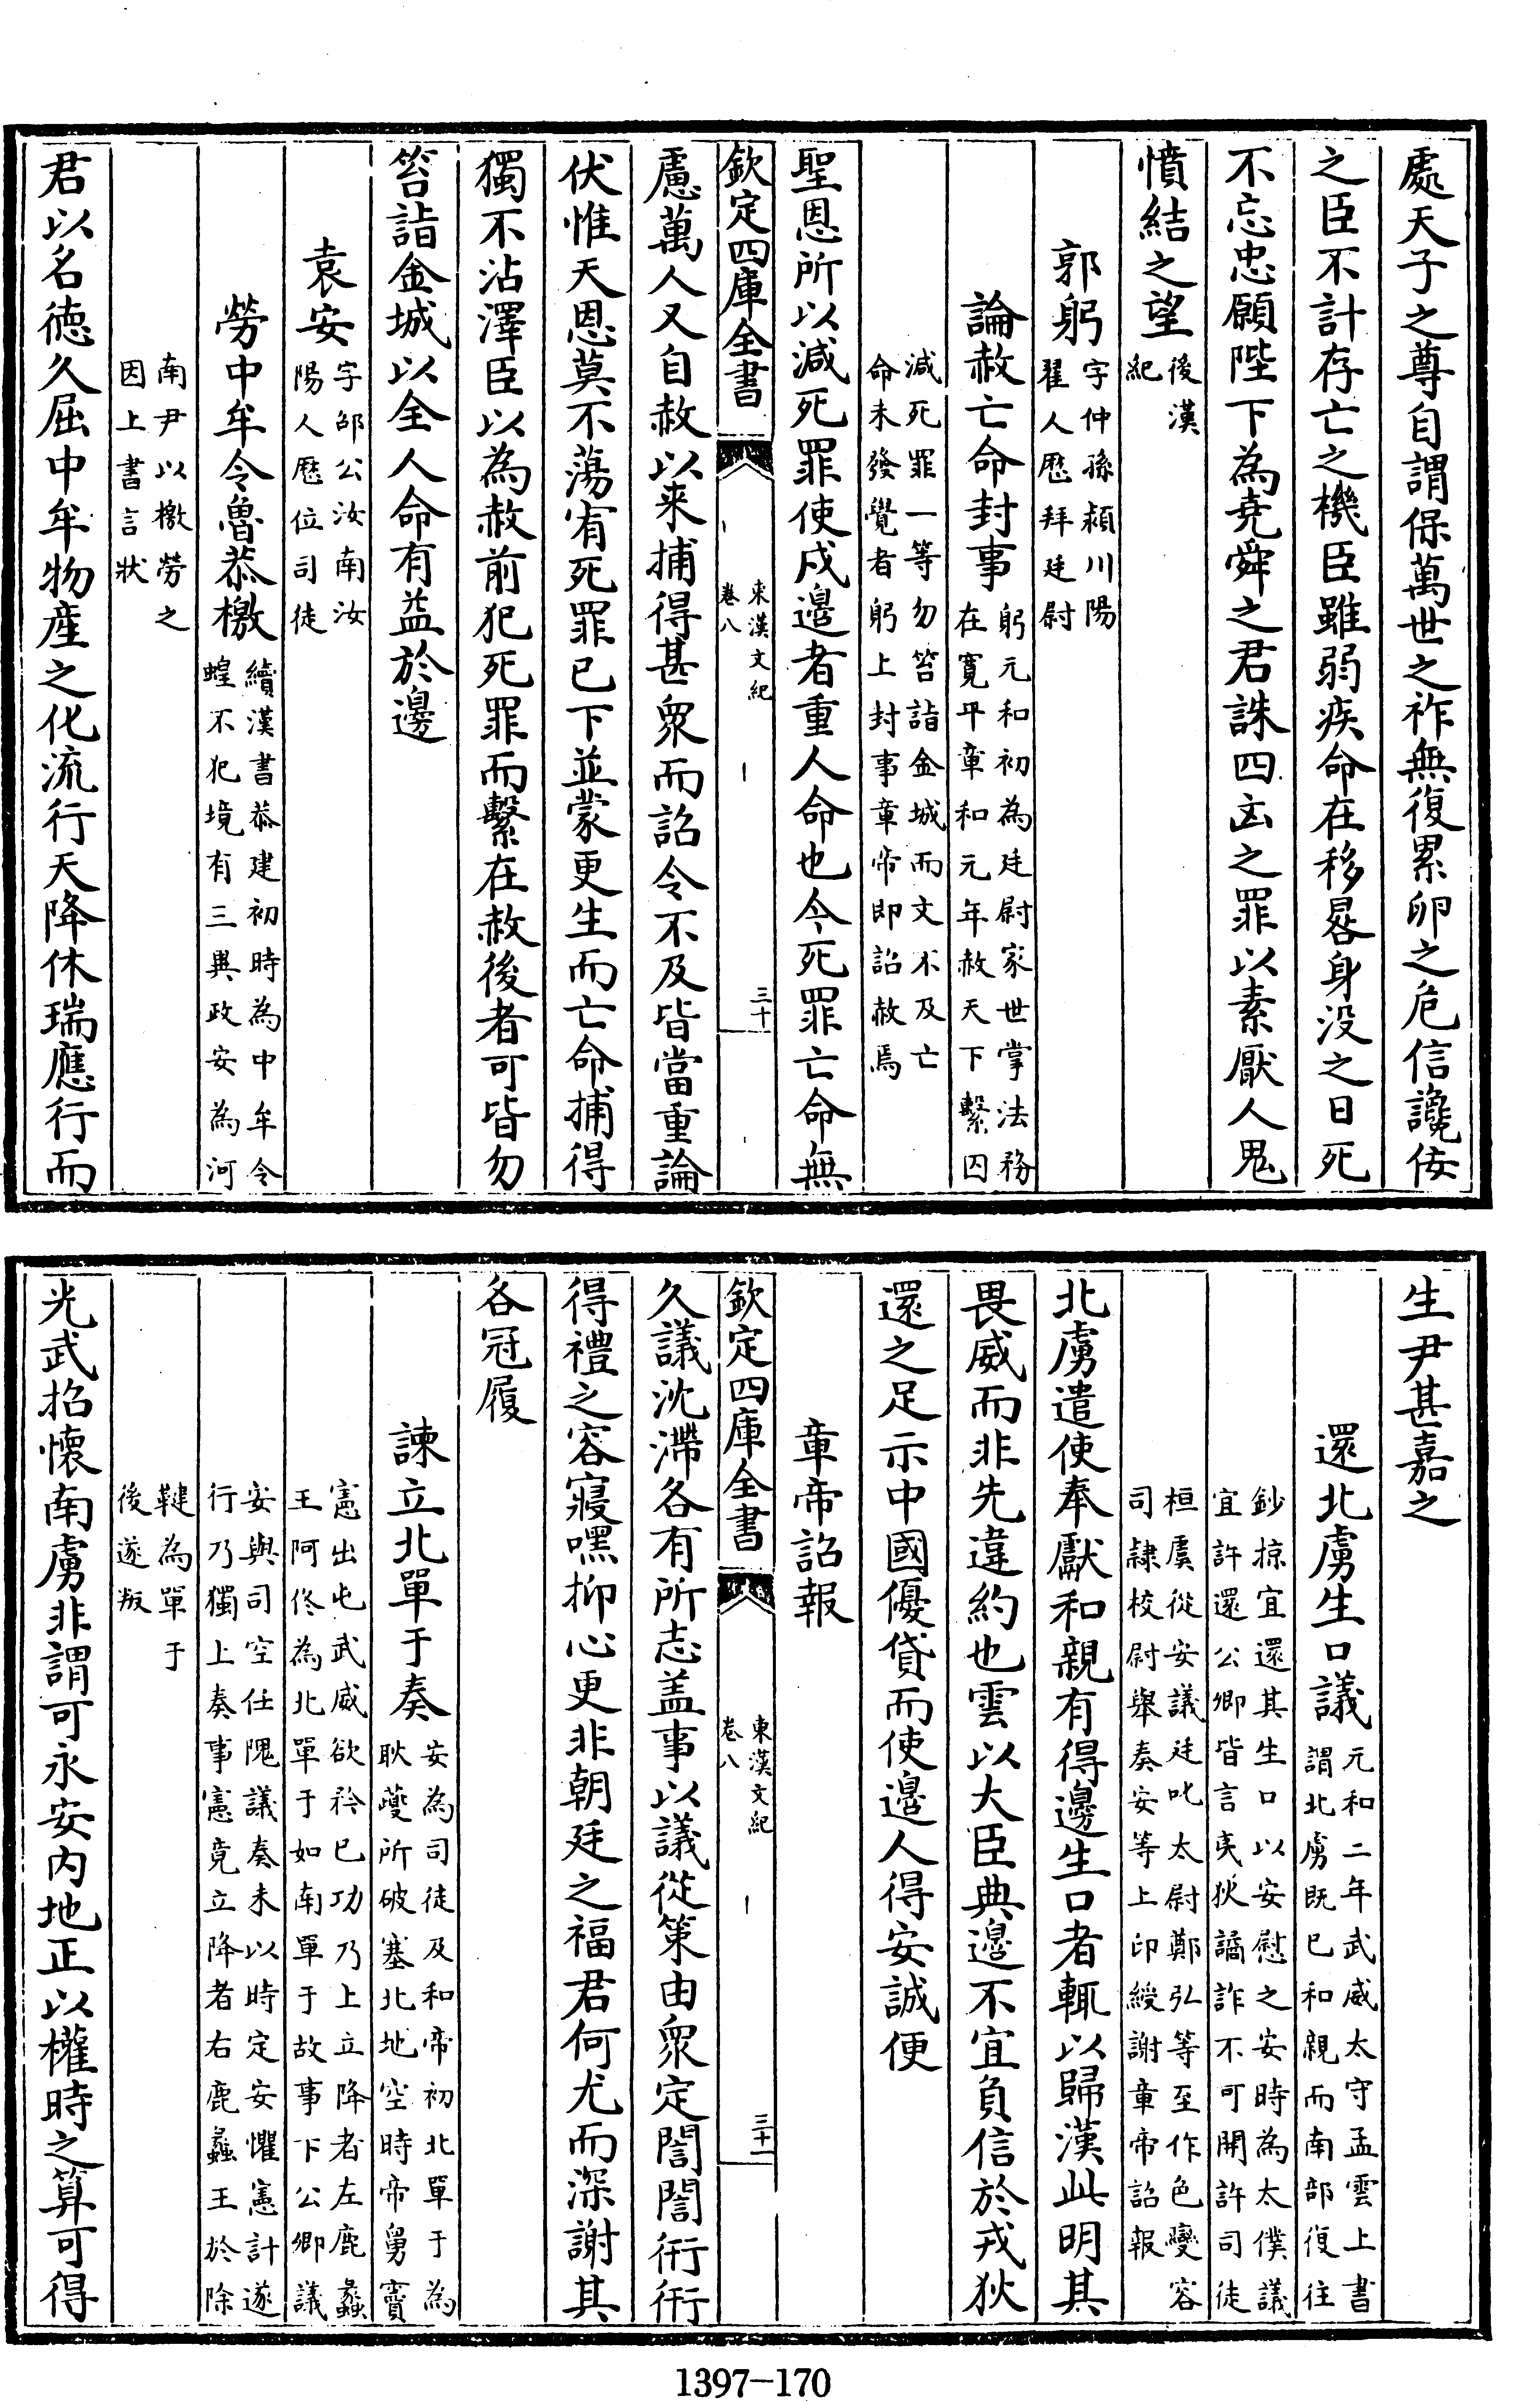 處天子之尊自謂保萬世之祚無復累卵之危信讒佞
之臣不計存亡之機臣雖弱疾命在移晷身没之日死
不忘忠願陛下為堯舜之君誅四凶之罪以素厭人鬼
憤結之望後漢
紀
郭躬字仲孫潁川陽
翟人歴拜廷尉
論赦亡命封事躬元和初為廷尉家世掌法務
在寛平章和元年赦天下繫囚
減死罪一等勿笞詣金城而文不及亡
命未發覺者躬上封事章帝即詔赦焉
聖恩所以減死罪使戍邉者重人命也今死罪亡命無
欽定四庫全書
東漢文紀
卷八
三十
慮萬人又自赦以来捕得甚衆而詔令不及皆當重論
伏惟天恩莫不蕩宥死罪已下並蒙更生而亡命捕得
獨不沾澤臣以為赦前犯死罪而繫在赦後者可皆勿
笞詣金城以全人命有益於邊
袁安字邵公汝南汝
陽人歴位司徒
勞中牟令魯恭檄續漢書恭建初時為中牟令
蝗不犯境有三異政安為河
南尹以檄勞之
因上書言狀
君以名德久屈中牟物産之化流行天降休瑞應行而
生尹甚嘉之
還北虜生口議元和二年武威太守孟雲上書
謂北虜既已和親而南部復往
鈔掠宜還其生口以安慰之安時為太僕議
宜許還公卿皆言夷狄譎詐不可開許司徒
桓虞從安議廷叱太尉鄭弘等至作色變容
司隷校尉舉奏安等上印綬謝章帝詔報
北虜遣使奉獻和親有得邊生口者輒以歸漢此明其
畏威而非先違約也雲以大臣典邊不宜負信於戎狄
還之足示中國優貸而使邉人得安誠便
章帝詔報
欽定四庫全書
東漢文紀
卷八
三十一
久議沈滯各有所志盖事以議從策由衆定誾誾衎衎
得禮之容寢嘿抑心更非朝廷之福君何尤而深謝其
各冠履
諫立北單于奏安為司徒及和帝初北單于為
耿夔所破塞北地空時帝舅竇
憲出屯武威欲矜已功乃上立降者左鹿蠡
王阿佟為北單于如南單于故事下公卿議
安與司空任隗議奏未以時定安懼憲計遂
行乃獨上奏事憲竟立降者右鹿蠡王於除
鞬為單于
後遂叛
光武招懷南虜非謂可永安内地正以權時之算可得
1397-170